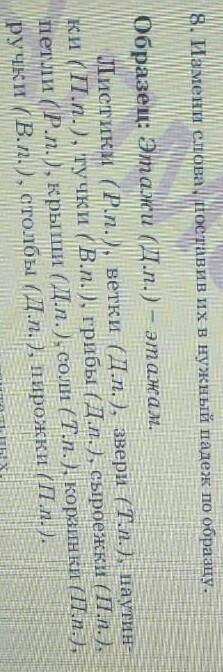 8. Измени слова, поставив их в нужный падеж по образцу.
Образец: Этажи (Д.п.) – этажам.
Листики (Р.п.), ветки (Д.п.), звери (Т.п.), паутин-
ки (П.п.), тучки (В.п.), грибы (Д.п.), сыроежки (П.п.),
петли (Р.п.), крыши (Д.п.), соли (Т.п.), корзинки (П.п.),
ручки (В.п.), столбы (Д.п.), пирожки (П.п.).